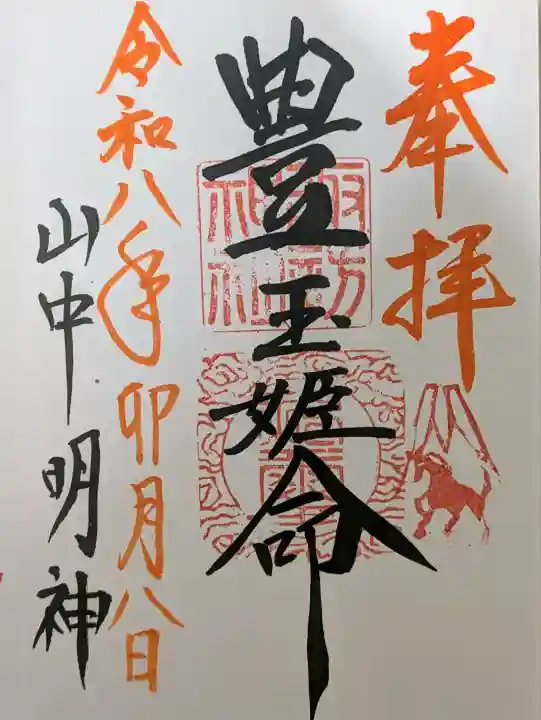 奉拝
豊玉姫命
令和八年卯月八日
山中明神